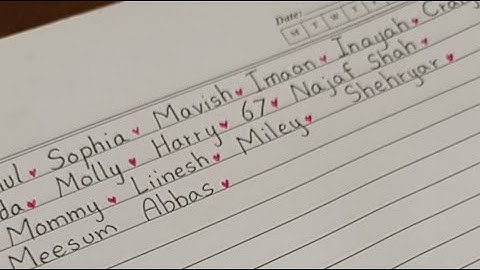 Date:
M T W T
Sophia Mavish Imaan Inayah
Molly Harry 67 Najaf Shah
Mommy Liinesh Miley Shehryar
Meesum Abbas